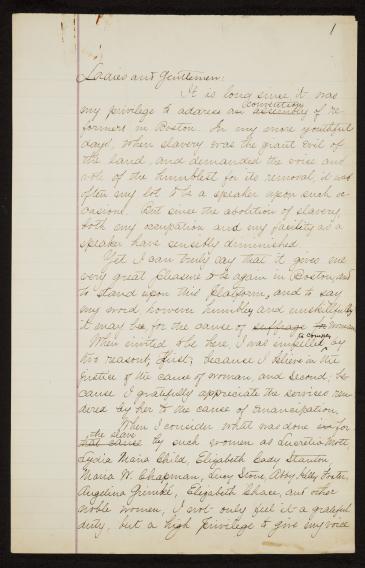 1
Ladies and Gentlemen:
It is long since it was
my privilege to address an assembly convention of re-
formers in Boston. In my more youthful
days, when slavery was the giant evil of
the land, and demanded the voice and
vote of the humblest for its removal, it was
often my lot to be a speaker upon such oc-
casions. But since the abolition of slavery,
both my occupation and my facility as a
speaker have sensibly diminished.
Yet I can truly say that it gives me
very great pleasure to be again in Boston, and
to stand upon this platform, and to say
my word however humbly and unskillfully
it may be, for the cause of suffrage for woman
When invited to be here, I was impelled to comply by
two reasons, first; because I believe in the
justice of the cause of woman, and second; be-
cause I gratefully appreciate the services ren-
dered by her to the cause of emancipation.
When I consider what was done for
that cause the slave by such women as Lucretia Mott
Lydia Maria Child, Elizabeth Cady Stanton
Maria W. Chapman, Lucy Stone, Abby Kelly Foster,
Angelina Grimké, Elizabeth Chace, and other
noble women, I not only feel it a grateful
duty, but a high privilege to give my voice